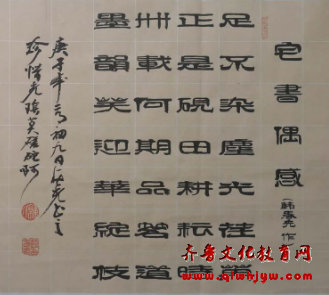 宅書偶感
作
足不染塵
正是硯田耕耘時
卅載何期品茗道
墨韻笑迎華綻枝
庚子年初九日
珍惜光陰莫蹉跎啊
齐鲁文化教育网
www.qlwhjyw.com